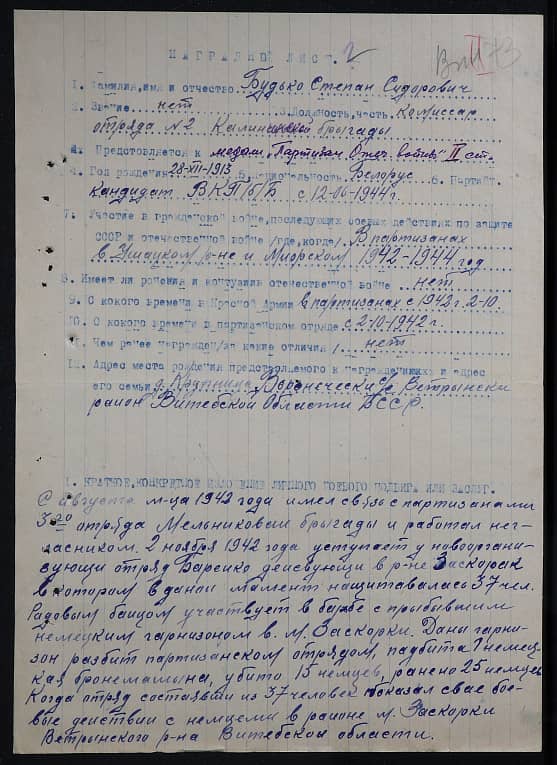 II 73
НАГРАДНОЙ ЛИСТ. 2
1. Фамилия, имя и отчество Будько Степан Сидорович
2. Звание нет 3. Должность, часть комиссар
отряда №2 Калининской бригады
Представляется к медали "Партизан Отеч. войны" II ст.
4. Год рождения 28-XII-1913 5. Национальность Белорус 6. Партийн.
кандидат ВКП/б/Б с 12-06-1944г.
7. Участие в гражданской войне, последующих боевых действиях по защите
СССР и отечественной войне /где, когда/. В партизанах
в Ушацком р-не и Миорском 1942-1944 год
8. Имеет ли ранения и контузии отечественной войне нет
9. С какого времени в Красной Армии в партизанах с 1942 г. 2-10.
10. С какого времени в партизанском отряде с 2-10-1942 г.
Чем ранее награжден /за какие отличия/. нет
Адрес места рождения представляемого к награждению и адрес
его семьи д. Воронечески с/с Ветрынски
район Витебской Области БССР.
1. КРАТКОЕ, КОНКРЕТНОЕ ИЗЛОЖЕНИЕ ЛИЧНОГО БОЕВОГО ПОДВИГА ИЛИ ЗАСЛУГ.
С августа м-ца 1942 года имел связь с партизанами
3го отряда Мельниковай брыгады и работал нег-
ласником. 2 ноября 1942 года уступает у новооргани-
зующи отряд Баренко дейсвующи в р-не Заскорак
в котором в данои момент нащитавалась 37 чел.
Радовым байцом участвует в барбе с прыбывшим
немецким гарнизоном в. м. Заскорки. Даны гарни-
зон разбит партизанском отрядом, падбита 1 немец-
кая бронемашына, убито 15 немцев, ранено 25 немцев
Когда отряд состаявшы из 37 человек показал свае бое-
вые действии с немцеми в районе м. Заскорки
Ветрынского р-на Витебскои области.